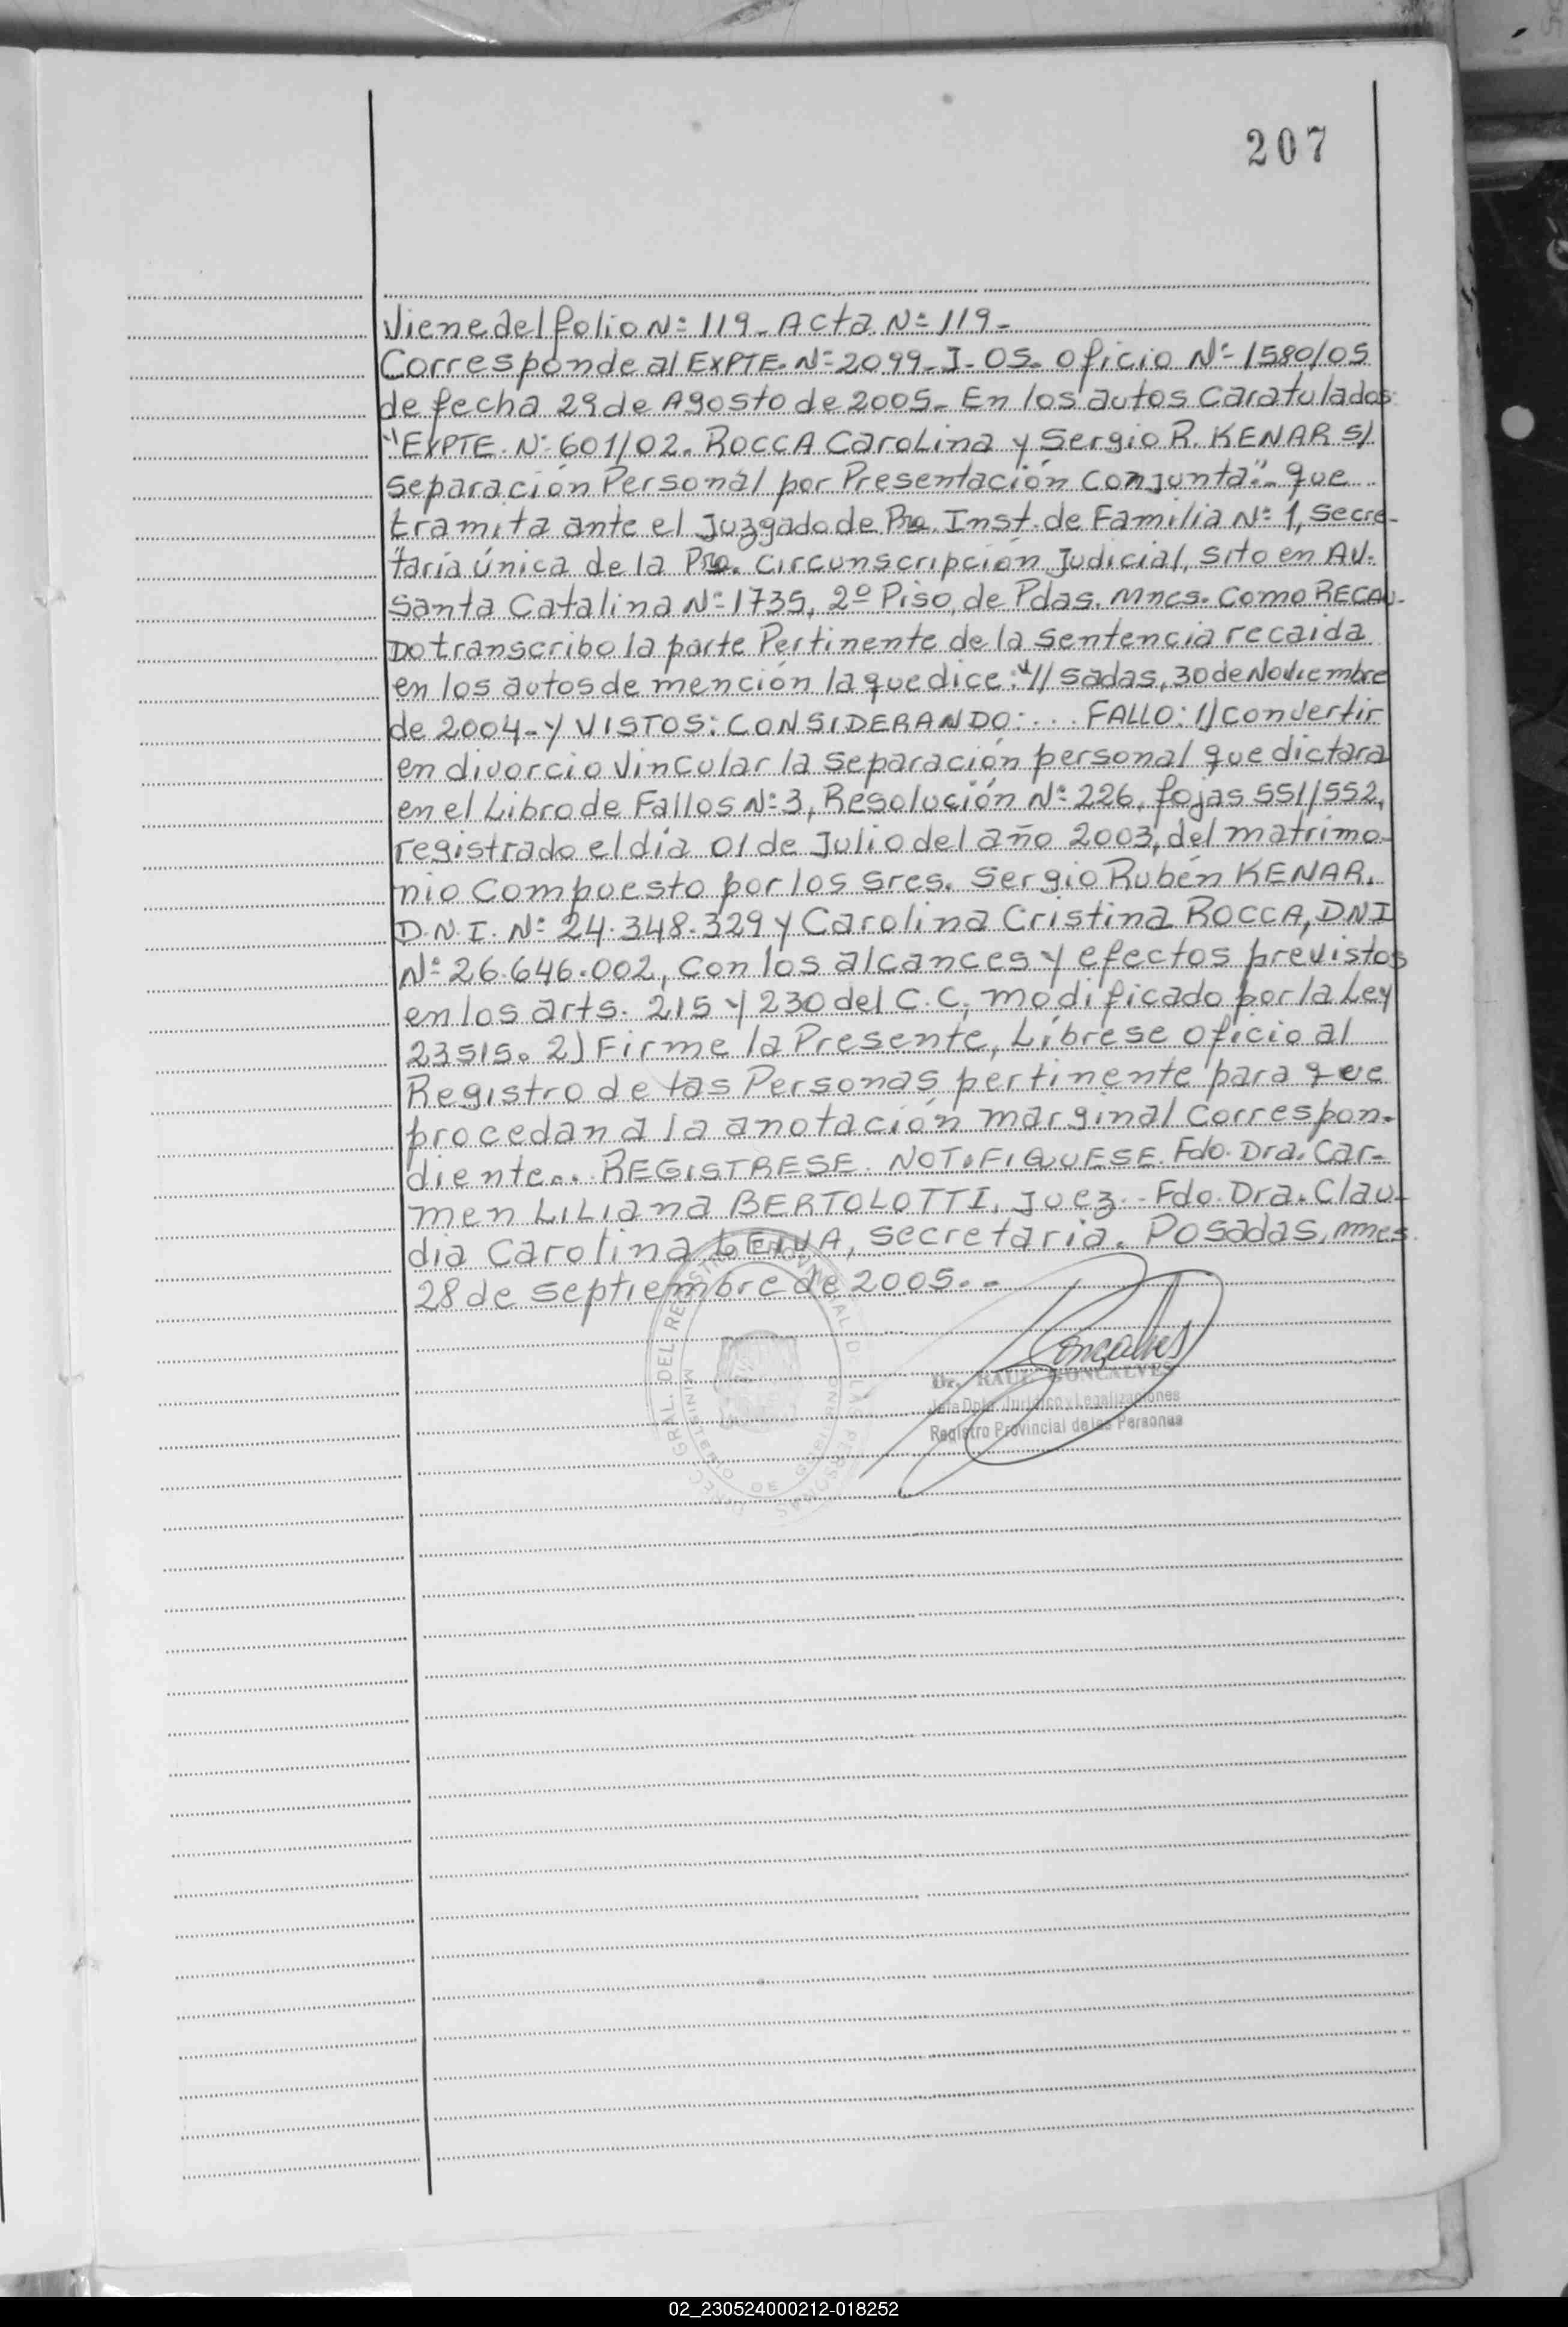 207
Viene del folio Nº 119_ Acta Nº 119_
Corresponde al EXPTE. Nº 2099_I_05. Oficio Nº 1580/05
de fecha 29 de Agosto de 2005_ En los autos Caratulados
"EXPTE. Nº 601/02. ROCCA Carolina y Sergio R. KENAR S/
Separación Personal por Presentación Conjunta"_ que
tramita ante el Juzgado de Pra. Inst. de Familia Nº 1, Secre-
taria única de la Pra. Circunscripción Judicial, sito en AV.
Santa Catalina Nº 1735, 2º Piso, de Pdas. Mnes. Como RECAU-
DO transcribo la parte Pertinente de la Sentencia recaida
en los autos de mención la que dice: "//sadas, 30 de Noviembre
de 2004_ Y VISTOS: CONSIDERANDO:... FALLO: 1) Convertir
en divorcio Vincular la Separación personal que dictara
en el Libro de Fallos Nº 3, Resolución Nº 226, fojas 551/552,
registrado el día 01 de Julio del año 2003, del matrimo-
nio Compuesto por los Sres. Sergio Rubén KENAR.
D.N.I. Nº 24.348.329 y Carolina Cristina ROCCA, DNI
Nº 26.646.002, con los alcances y efectos previstos
en los arts. 215 y 230 del C.C, modificado por la Ley
23515. 2) Firme la Presente, Líbrese oficio al
Registro de las Personas pertinente para que
procedan a la anotación marginal correspon-
diente... REGISTRESE. NOTIFIQUESE. Fdo. Dra. Car-
men LILIana BERTOLOTTI, Juez.. Fdo. Dra. Clau-
dia Carolina LEIVA, Secretaria. Posadas, mnes
28 de septiembre de 2005..
Goncalves
Dr. RAUL GONCALVES
Jefe Dpto. Jurídico y Legalizaciones
Registro Provincial de las Personas
DIREC. GRAL. DEL REGISTRO PROVINCIAL DE LAS PERSONAS
MINISTERIO DE GOBIERNO
02_230524000212-018252